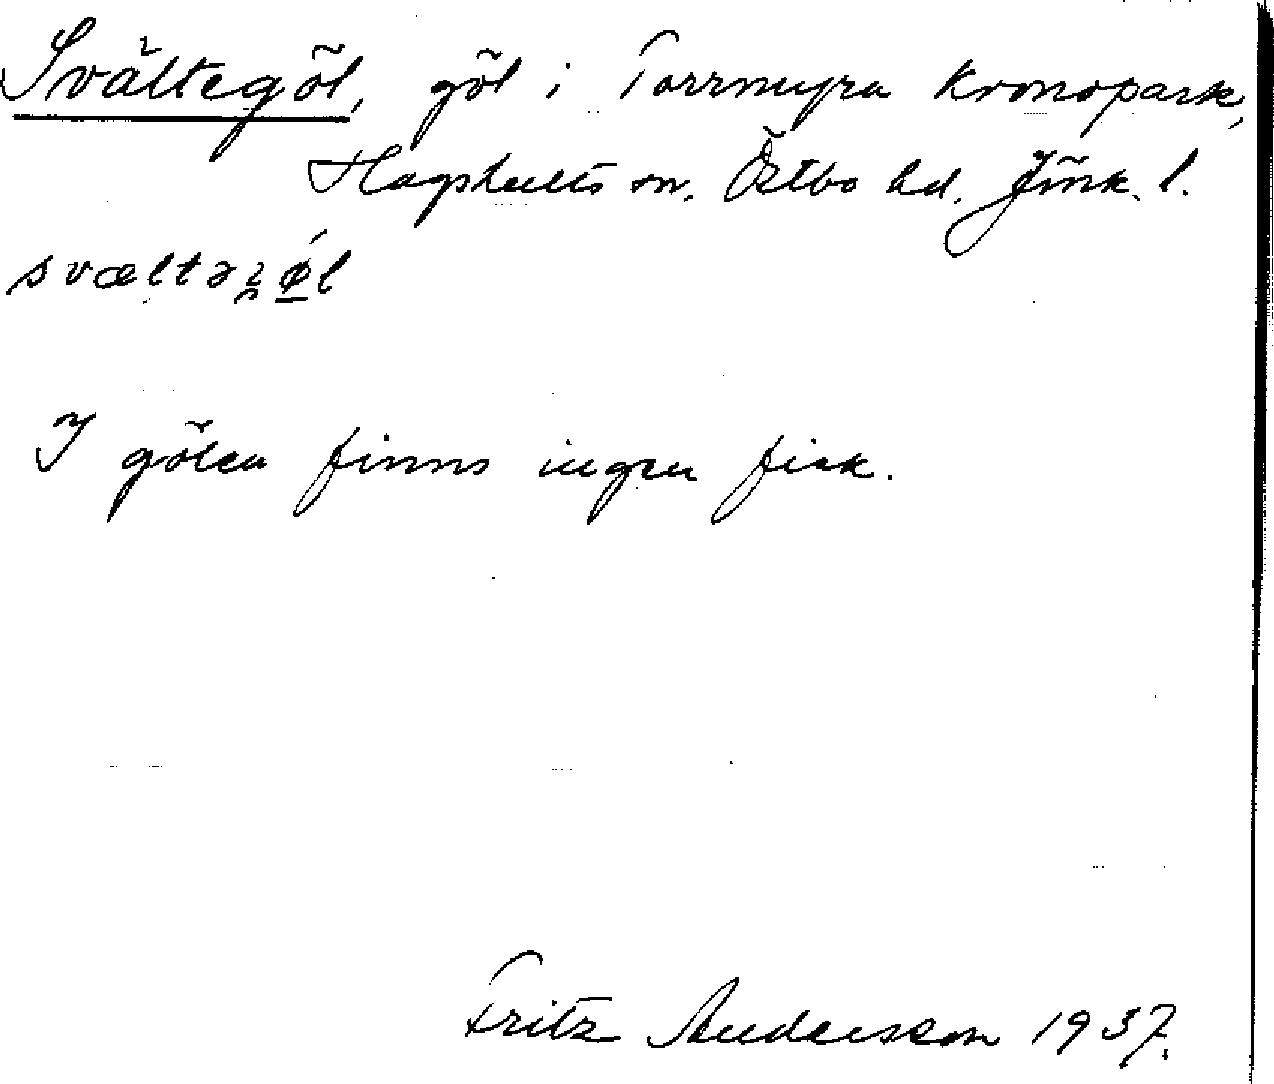 Svältegöl, göl i Torrmyra kronopark,
Hagshults sn. Östbo hd. Jönk. l.
svæltəʒǿl
I gölen finns ingen fisk.
Fritz Andersson 1937.